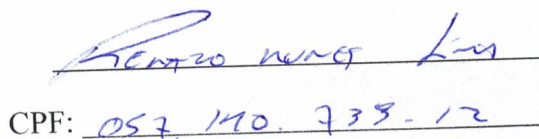 Renato Nunes Lins
CPF: 057.140.739-12